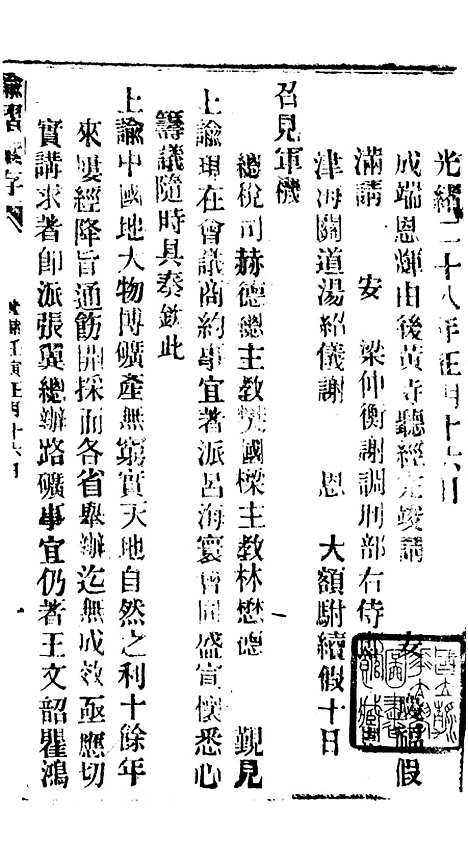 光緒二十八年正月十六日
成端恩輝由後黃寺聽經完竣請 安 福假
滿請 安 梁仲衡謝調刑部右侍 恩
津海關道湯紹儀謝 恩 大額駙續假十日
召見軍機
總稅司赫德總主教樊國樑主教林懋德 覲見
上諭現在會議商約事宜著派呂海寰會同盛宣懷悉心
籌議隨時具奏欽此
上諭中國地大物博礦產無窮實天地自然之利十餘年
來屢經降旨通飭開採而各省舉辦迄無成效亟應切
實講求著即派張翼總辦路礦事宜仍著王文韶瞿鴻
諭摺彙存
光緒壬寅正月十六日
一
國立
圖書
館藏